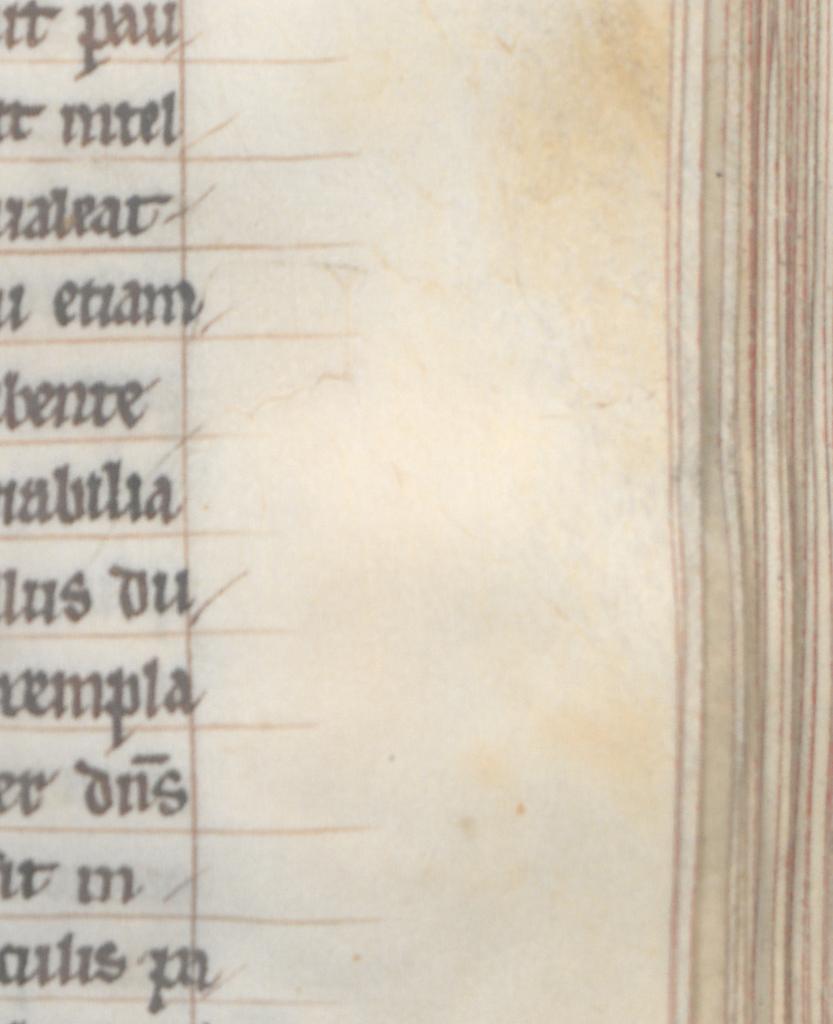 it pau
tt intel
ualeat
u etiam
bente
iabilia
llus du
xempla
er dn̄s
sit in
culis pri